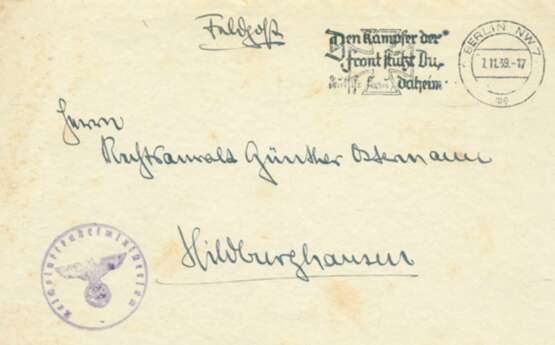 Feldpost
Den Kämpfer der
Front stützt Du,
daheim
BERLIN NW 7
7.11.39.-17
Herrn
Rechtsanwalt Günther Ostermann
Hildburghausen
Reichsluftfahrtministerium